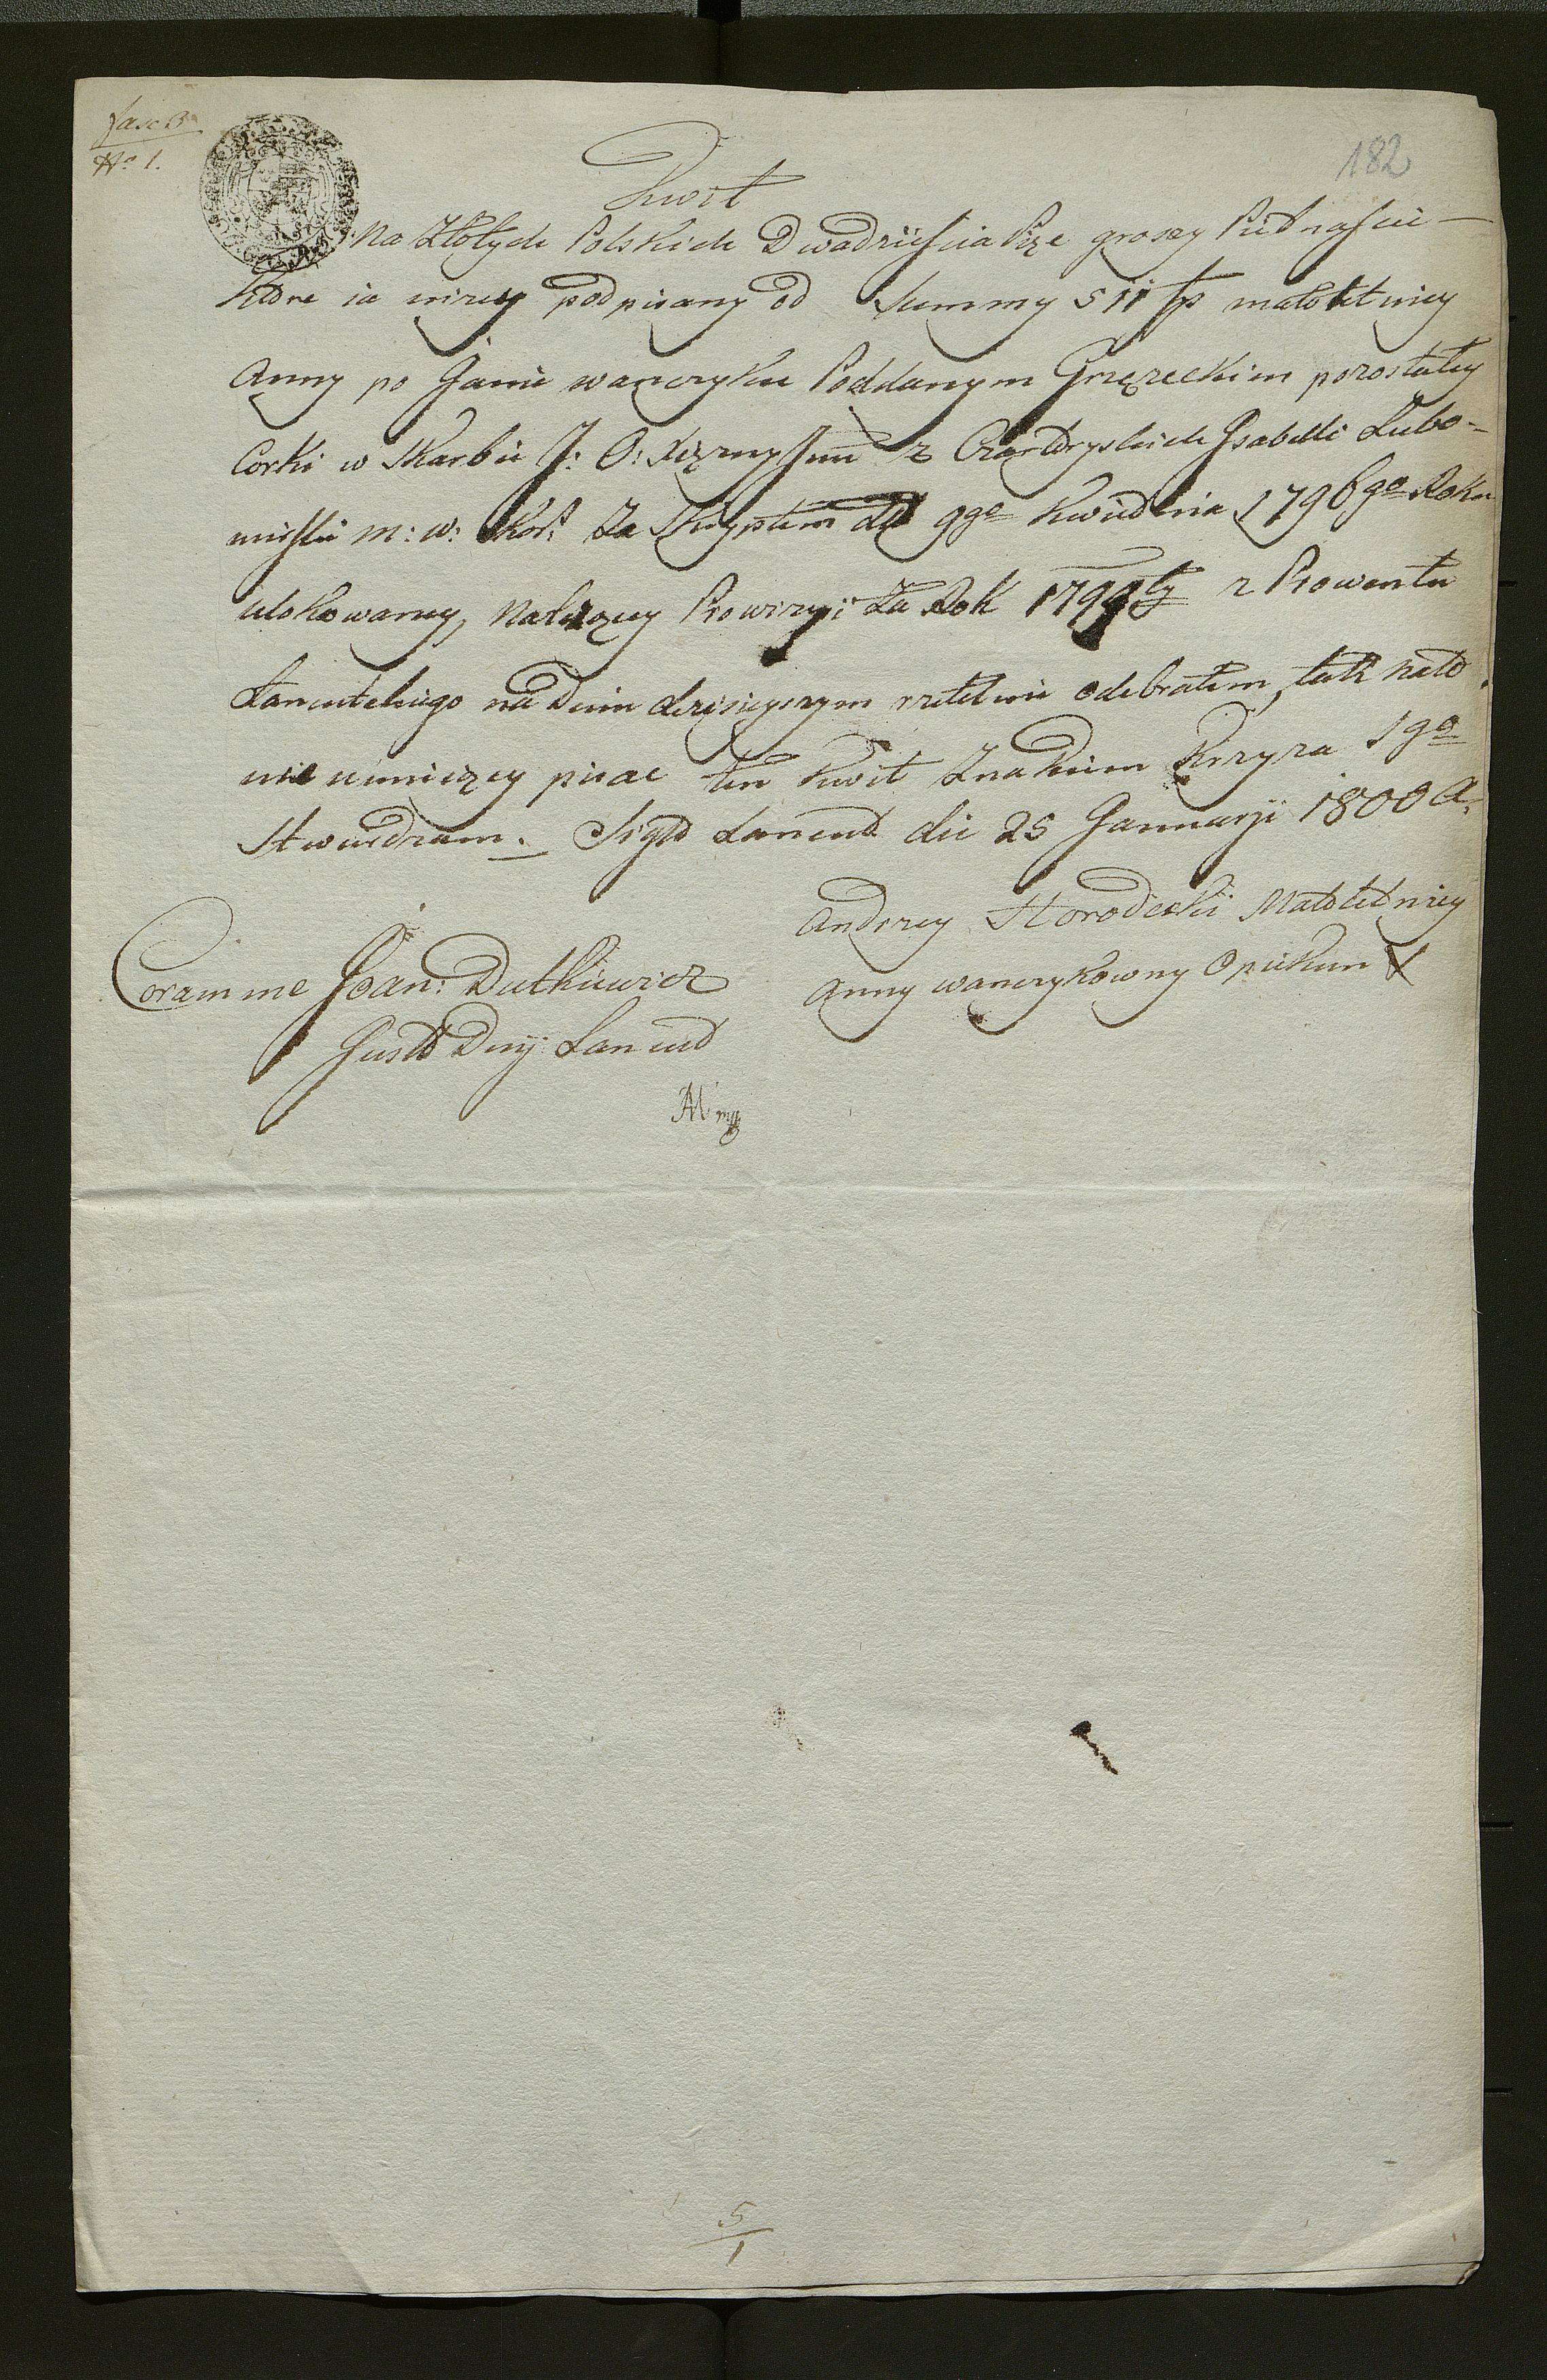 fasc B
No 1.
182
Kwit
Na Złotych Polskich Dwadzieścia Pięć groszy Piętnaście —
które ia niżey podpisany od Summy 511 fp małoletniey
Anny po Janie wanczyku Poddanym pozostałey
Corki w Skarbie J: O: Xiężny Jmci z Czartoryskich Jsabelli Lubo-
mirskii m: w: Kor: Za Skryptem dd 9go Kwietnia 1796go Roku
ulokowaney, Należącey Prowizyi Za Rok 1799ty z Prowentu
Łancutskiego na Dniu dzisieyszym rzetelnie odebrałem, tak na to
nie umieiący pisac ten kwit Znakiem Krzyza Sgo
Stwierdzam. Sigtt Łancut die 25 Januarii 1800 A.
Andrzey Horodecki Małoletniey
Anny wanczykowny Opiekun X
Coram me Joan: Dutkiewicz
Justt Dnÿ Łancut
5
1